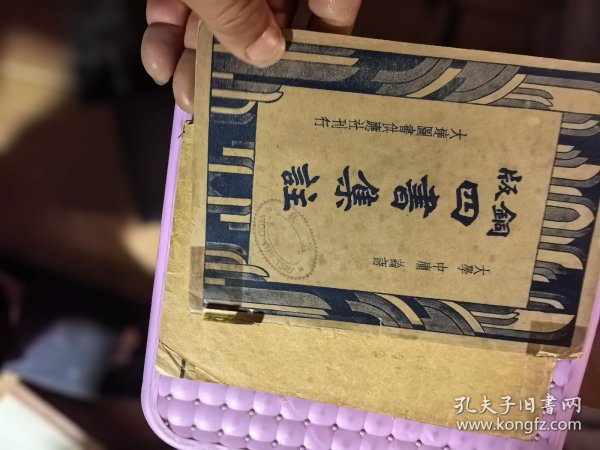 大學 中庸 論語
銅版
四書集註
大達圖書供應社刊行
孔夫子旧书网
www.kongfz.com